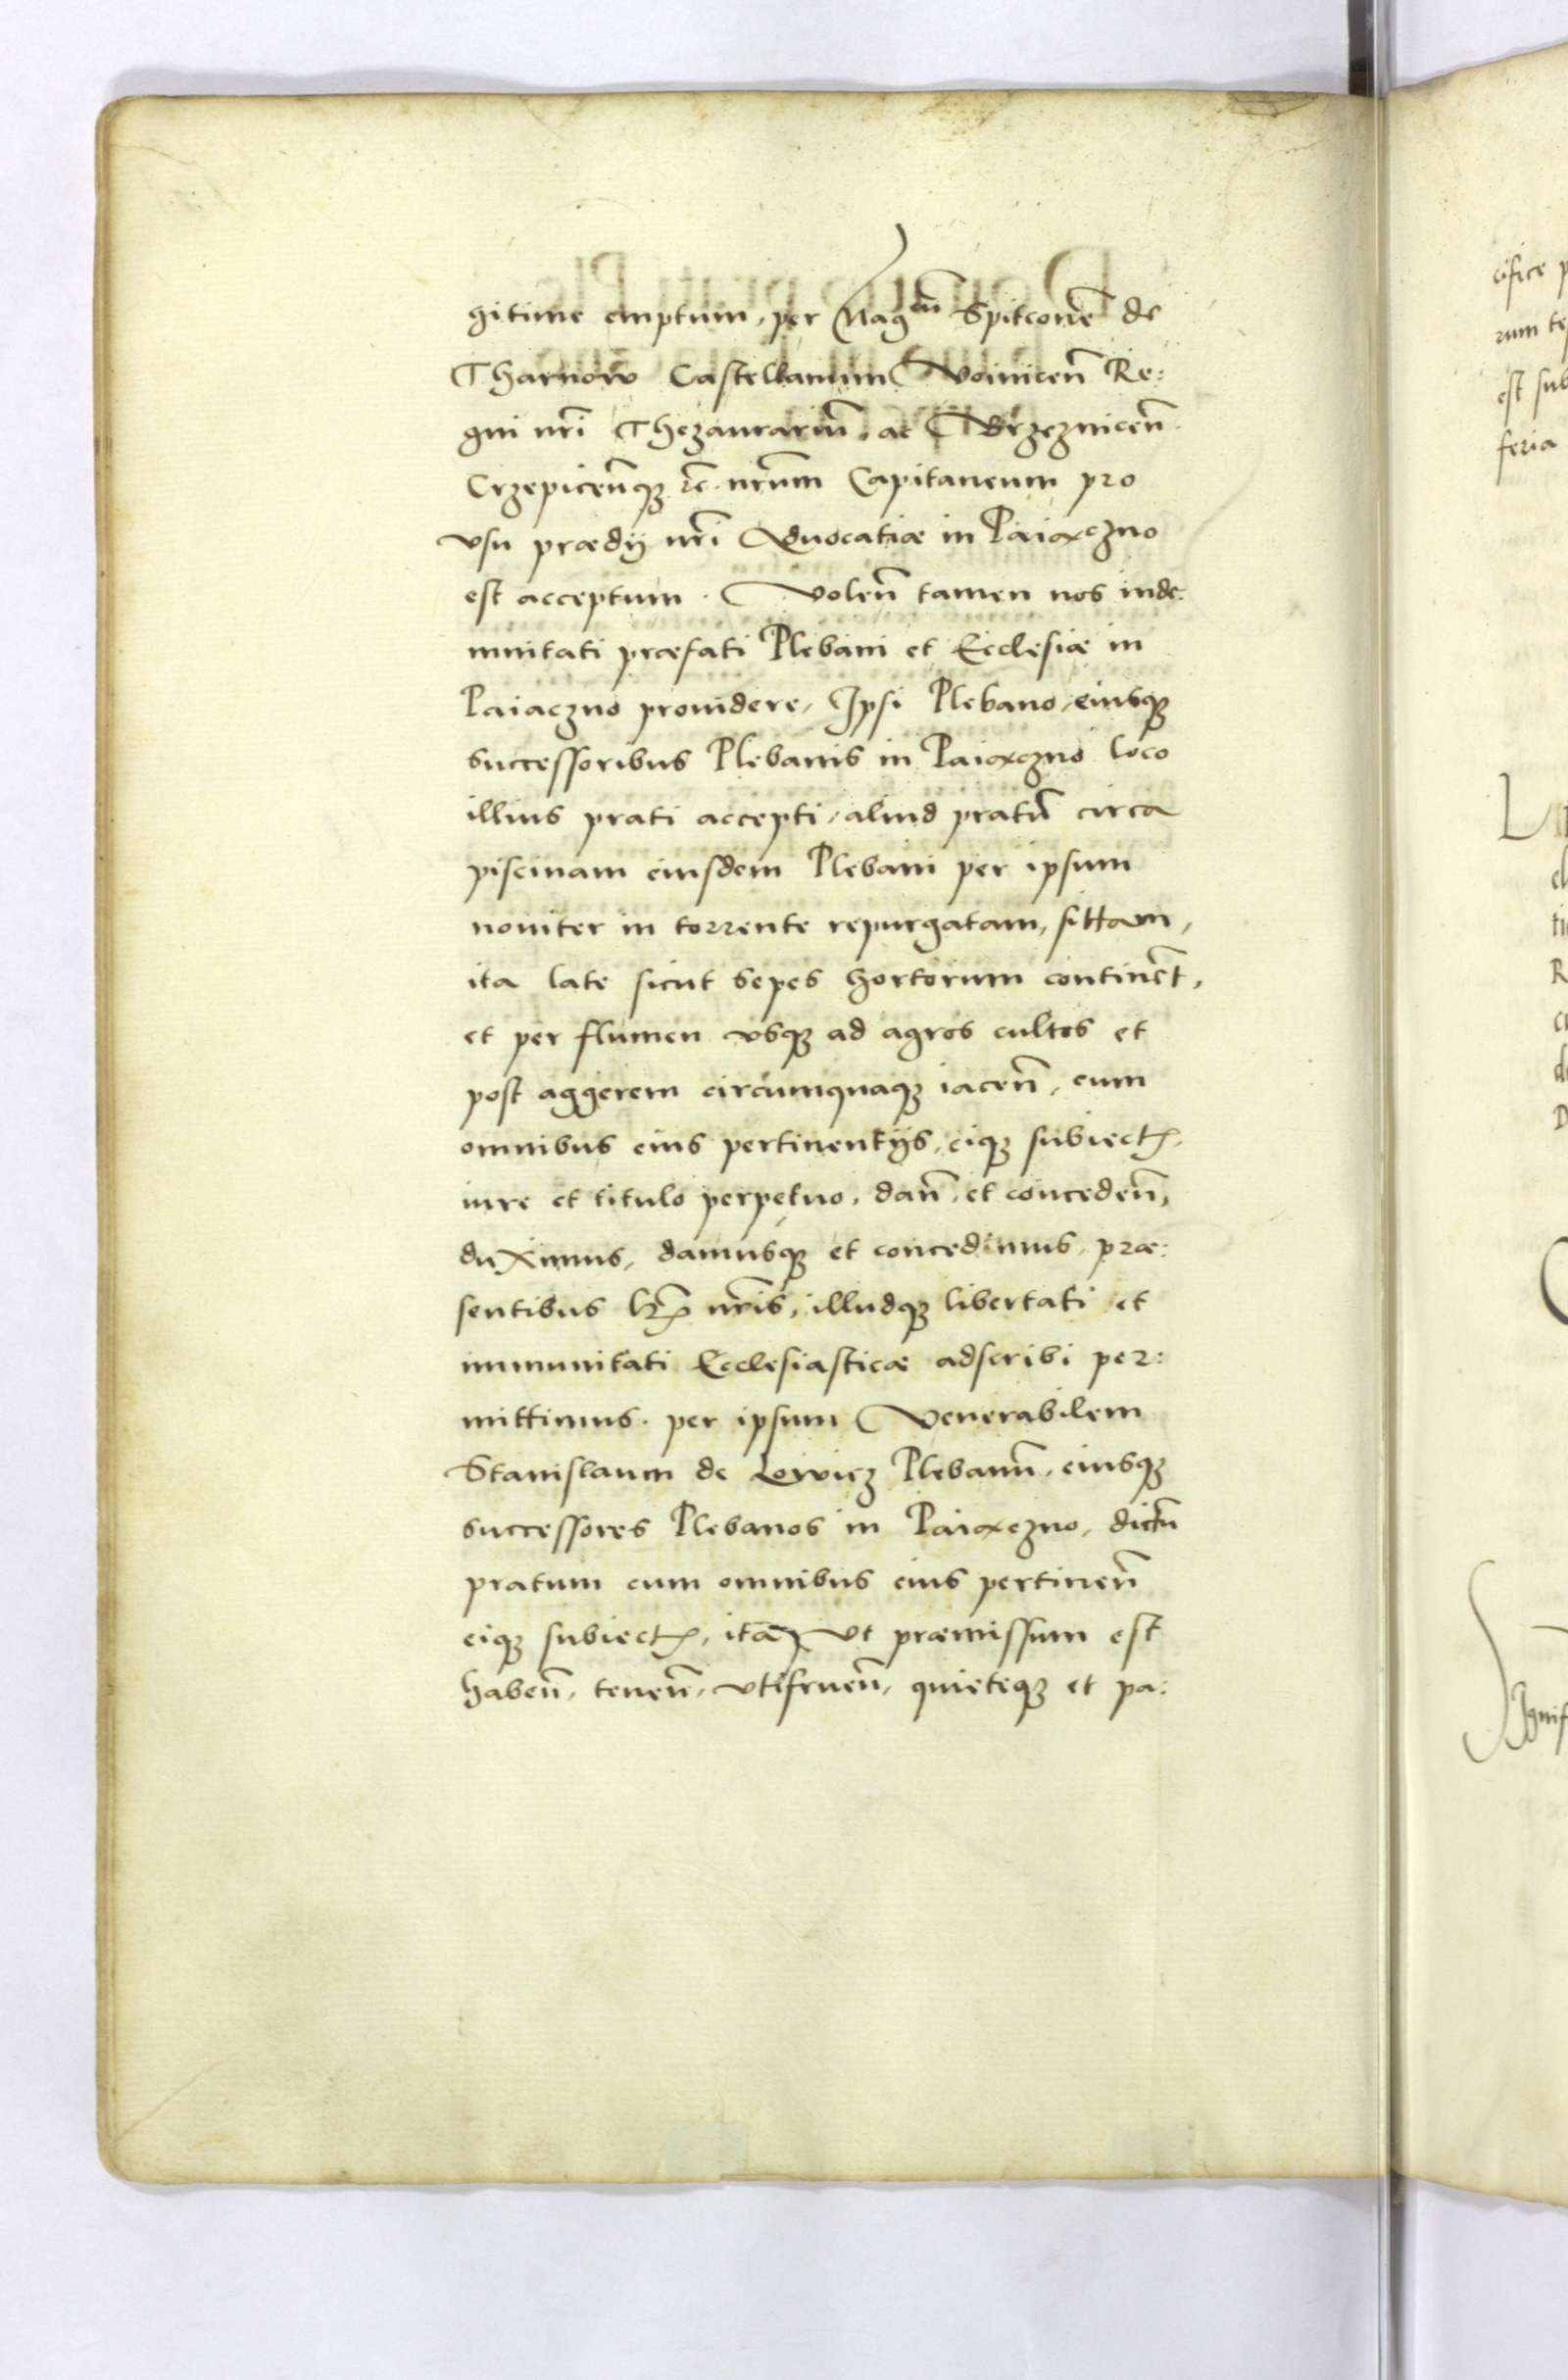 gitime emptum, per Mag^cũ Spitconẽ de
Tharnow Castellanum Voinicen̄ Re:
gni nr̃i Thezaurariũ, ac Brzeznicen̄
Crzepicen̄q₃ rc̃. nr̃um Capitaneum pro
vsu prædij nr̃i Aduocatiæ in Paiæczno
est acceptum. Volen̄ tamen nos inde:
mnitati præfati Plebani et Ecclesiæ in
Paiaczno prouidere, Ipsi Plebano, eiusq₃
successoribus Plebanis in Paiæczno loco
illius prati accepti, aliud pratũ circa
piscinam eiusdem Plebani per ipsum
nouiter in torrente repurgatam, sittam,
ita late sicut sepes hortorum continẽt,
et per flumen vsq₃ ad agros cultos et
post aggerem circumquaq₃ iacen̄, cum
omnibus eius pertinentijs, eiq₃ subiectꝭ,
iure et titulo perpetuo, dan̄, et conceden̄,
duximus, damusq₃ et concedimus, præ:
sentibus lr̃ꝭ nr̃is, illudq₃ libertati et
immunitati Ecclesiasticæ adscribi per:
mittimus. per ipsum Venerabilem
Stanislaum de Lowicz Plebanũ, eiusq₃
successores Plebanos in Paiæczno, dictũ
pratum cum omnibus eius pertinen̄
eiq₃ subiectꝭ, ita vt præmissum est
haben̄, tenen̄, vtifruen̄, quieteq₃ et pa:
cifice p
rum te
est sub
feria